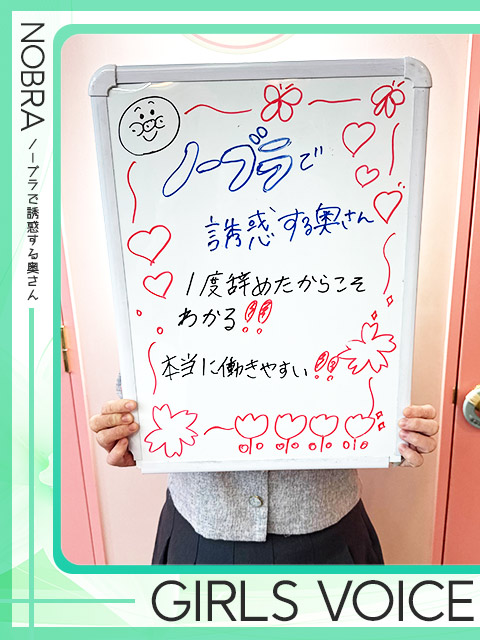 NOBRA
ノーブラで誘惑する奥さん
ノーブラで
誘惑する奥さん
1度辞めたからこそ
わかる!!
本当に働きやすい!!
GIRLS VOICE